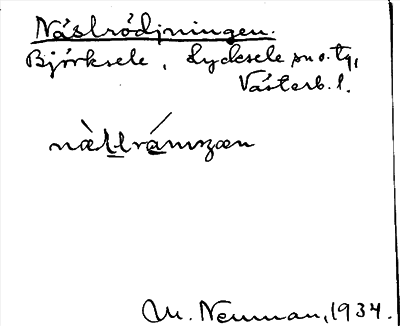 Näslrödjningen.
Björksele, Lycksele sn o. tg,
Västerb. l.
nàllrámzæn
M. Neuman, 1934.